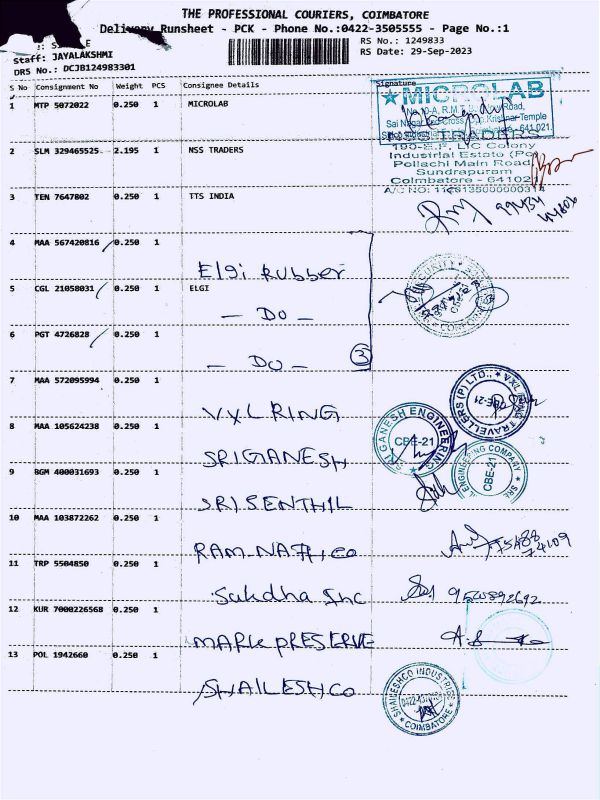 THE PROFESSIONAL COURIERS, COIMBATORE
Delivery Runsheet - PCK - Phone No.:0422-3505555 - Page No.:1
RS No.: 1249833
Staff: JAYALAKSHMI RS Date: 29-Sep-2023
DRS No.: DCJB124983301
S No Consignment No Weight PCS Consignee Details Signature
1 MTP 5072022 0.250 1 MICROLAB
MICROLAB
Road,
Temple
641 021.
2 SLM 329465525 2.195 1 NSS TRADERS
TRADERS
190-E.F, LIC Colony
Industrial Estate (Po)
Pollachi Main Road
Sundrapuram
Coimbatore - 64102
3 TEN 7647802 0.250 1 TTS INDIA
4 MAA 567420816 0.250 1
Elgi Rubber
5 CGL 21058031 0.250 1 ELGI
- Do -
6 PGT 4726828 0.250 1
- Do - 3
7 MAA 572095994 0.250 1
VXL RING
VXL RING TRAVELLERS (P) LTD., CBE-21
8 MAA 105624238 0.250 1
SRI GANESH
SRI GANESH ENGINEERING CBE-21
9 BGM 400031693 0.250 1
SRI SENTHIL
ENGINEERING COMPANY CBE-21
10 MAA 103872262 0.250 1
RAM NATH, CO
11 TRP 5504850 0.250 1
Sukdha Inc
12 KUR 7000226568 0.250 1
MARK PRESERVE
13 POL 1942660 0.250 1
SHAILESHCO
SHAILESHCO INDUSTRIES COIMBATORE